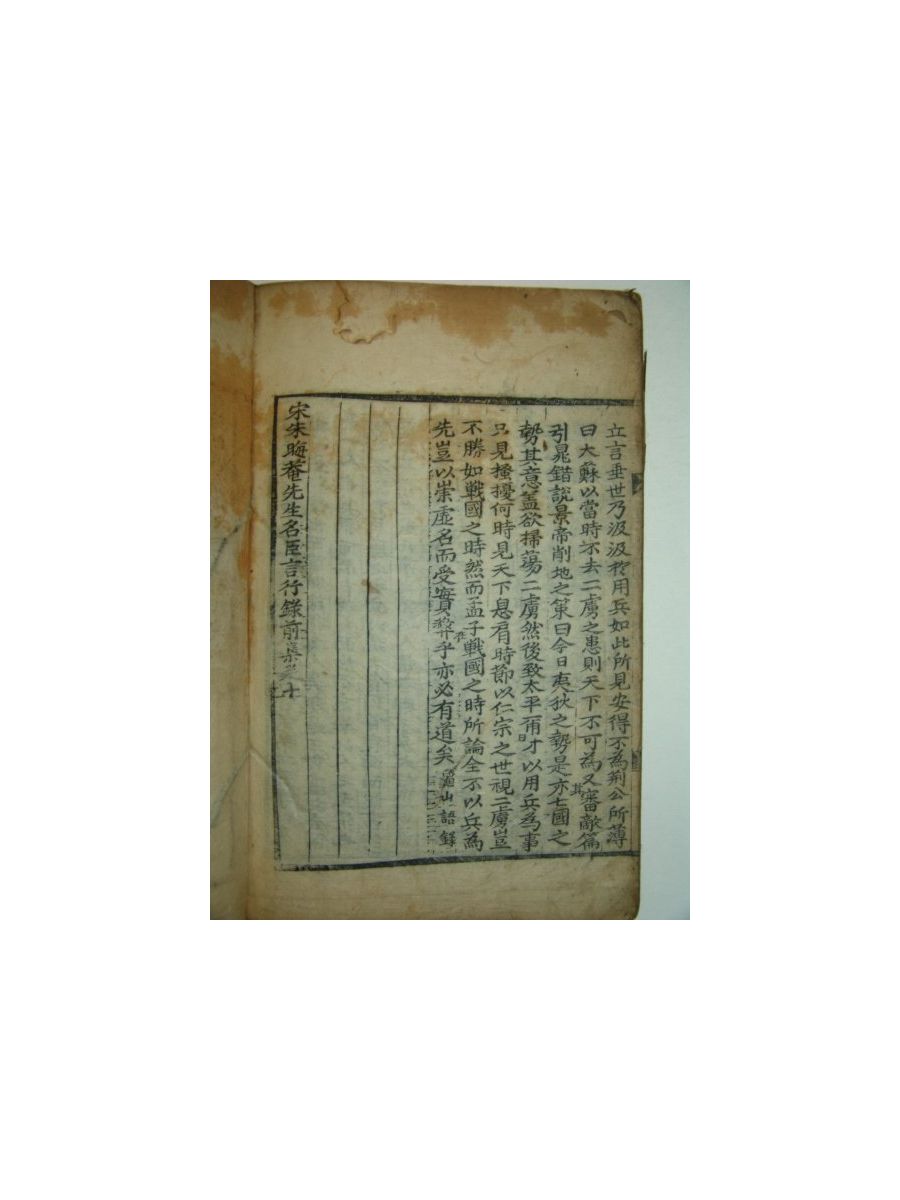 立言垂世乃汲汲於用兵如此所見安得不為荆公所薄
曰大蘇以當時不去二虜之患則天下不可為又審敵篇
引晁錯說景帝削地之策曰今日夷狄之勢是亦七國之
勢其意盖欲掃蕩二虜然後致太平爾才以用兵為事
只見搔擾何時見天下息肩時節以仁宗之世視二虜豈
不勝如戦國之時然而孟子戦國之時所論全不以兵為
先豈以崇虛名而受實弊乎亦必有道矣 龜山語錄
宋朱晦菴先生名臣言行錄前集卷十